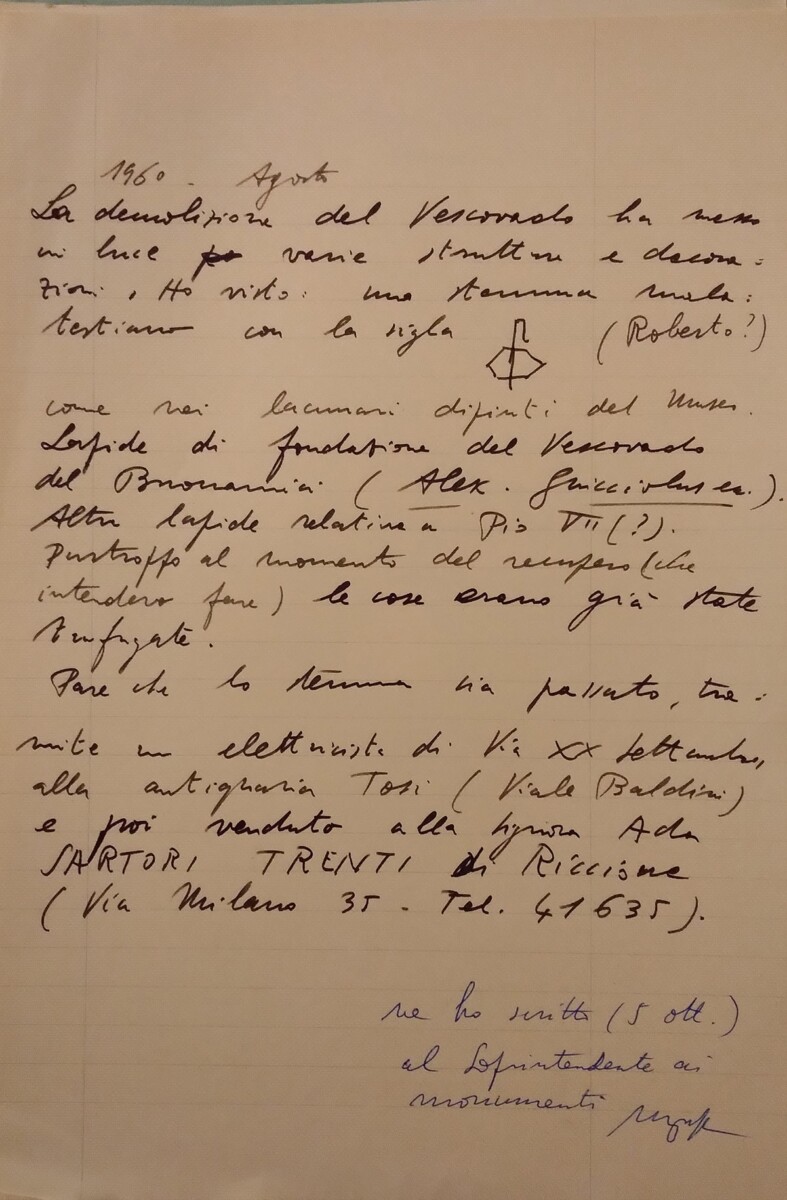 1960 - Agosto
La demolizione del Vescovado ha messo
in luce varie strutture e decora=
zioni. Ho visto: uno stemma mala=
testiano con la sigla (Roberto?)
come nei lacunari dipinti del Museo.
Lapide di fondazione del Vescovado
del Buonamici (Alex. Guicciolus
Altra lapide relativa a Pio VII (?).
Purtroppo al momento del recupero (che
intendevo fare) le cose erano già state
trafugate.
Pare che lo stemma sia passato, tra=
mite un elettricista di Via XX Settembre,
alla antiquaria Tosi (Viale Baldini)
e poi venduto alla signora Ada
SARTORI TRENTI di Riccione
(Via Milano 35 - Tel. 41635).
ne ho scritto (5 ott.)
al Soprintendente ai
monumenti